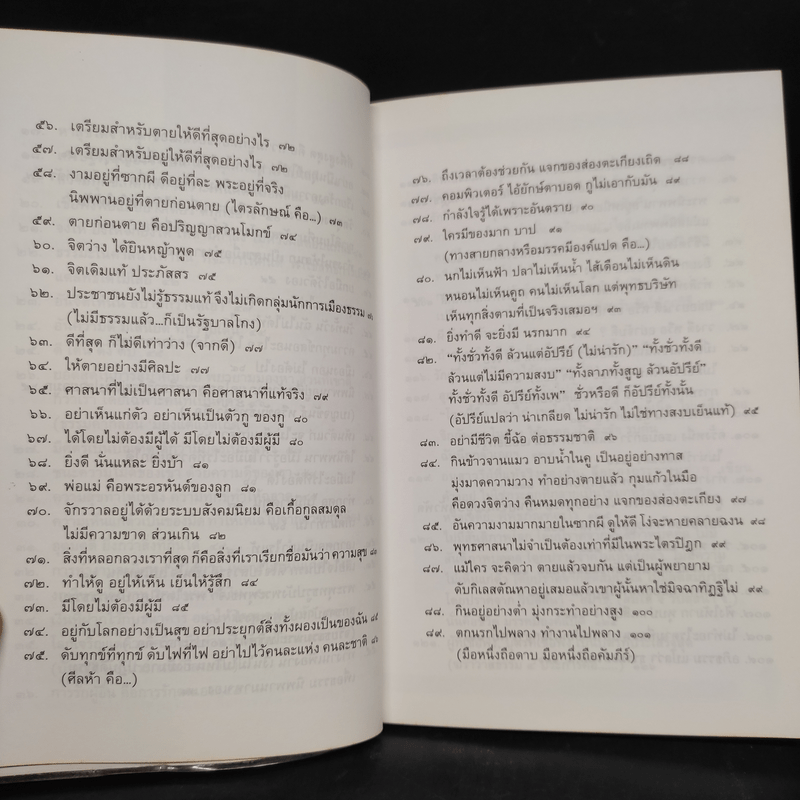 ๕๖. เตรียมสำหรับตายให้ดีที่สุดอย่างไร ๗๒
๕๗. เตรียมสำหรับอยู่ให้ดีที่สุดอย่างไร ๗๒
๕๘. งามอยู่ที่ซากผี ดีอยู่ที่ละ พระอยู่ที่จริง
นิพพานอยู่ที่ตายก่อนตาย (ไตรลักษณ์ คือ...) ๗๓
๕๙. ตายก่อนตาย คือปริญญาสวนโมกข์ ๗๔
๖๐. จิตว่าง ได้ยินหญ้าพูด ๗๕
๖๑. จิตเดิมแท้ ประภัสสร ๗๕
๖๒. ประชาชนยังไม่รู้ธรรมแท้ จึงไม่เกิดกลุ่มนักการเมืองธรรม
(ไม่มีธรรมแล้ว...ก็เป็นรัฐบาลโกง)
๖๓. ดีที่สุด ก็ไม่ดีเท่าว่าง (จากดี) ๗๗
๖๔. ให้ตายอย่างมีศิลปะ ๗๗
๖๕. ศาสนาที่ไม่เป็นศาสนา คือศาสนาที่แท้จริง ๗๙
๖๖. อย่าเห็นแก่ตัว อย่าเห็นเป็นตัวกู ของกู ๘๐
๖๗. ได้โดยไม่ต้องมีผู้ได้ มีโดยไม่ต้องมีผู้มี ๘๐
๖๘. ยิ่งดี นั่นแหละ ยิ่งบ้า ๘๑
๖๙. พ่อแม่ คือพระอรหันต์ของลูก ๘๑
๗๐. จักรวาลอยู่ได้ด้วยระบบสังคมนิยม คือเกื้อกูลสมดุล
ไม่มีความขาด ส่วนเกิน ๘๒
๗๑. สิ่งที่หลอกลวงเราที่สุด ก็คือสิ่งที่เราเรียกชื่อมันว่า ความสุข
๗๒. ทำให้ดู อยู่ให้เห็น เย็นให้รู้สึก ๘๔
๗๓. มีโดยไม่ต้องมีผู้มี ๘๕
๗๔. อยู่กับโลกอย่างเป็นสุข อย่าประยุกต์สิ่งทั้งผองเป็นของฉัน ๘๕
๗๕. ดับทุกข์ที่ทุกข์ ดับไฟที่ไฟ อย่าไปไว้คนละแห่ง คนละชาติ ๘๖
(ศีลห้า คือ...)
๗๖. ถึงเวลาต้องช่วยกัน แจกของส่องตะเกียงเถิด ๘๘
๗๗. คอมพิวเตอร์ ไอ้ยักษ์ตาบอด กูไม่เอากับมัน ๘๙
๗๘. กำลังใจรู้ได้เพราะอันตราย ๙๐
๗๙. ใครมีของมาก บาป ๙๑
(ทางสายกลางหรือมรรคมีองค์แปด คือ...)
๘๐. นกไม่เห็นฟ้า ปลาไม่เห็นน้ำ ไส้เดือนไม่เห็นดิน
หนอนไม่เห็นคูถ คนไม่เห็นโลก แต่พุทธบริษัท
เห็นทุกสิ่งตามที่เป็นจริงเสมอฯ ๙๓
๘๑. ยิ่งทำดี จะยิ่งมี นรกมาก ๙๔
๘๒. “ทั้งชั่วทั้งดี ล้วนแต่อัปรีย์ (ไม่น่ารัก)” “ทั้งชั่วทั้งดี
ล้วนแต่ไม่มีความสงบ” “ทั้งลาภทั้งสูญ ล้วนอัปรีย์”
ทั้งชั่วทั้งดี อัปรีย์ทั้งเพ” ชั่วหรือดี ก็อัปรีย์ทั้งนั้น
(อัปรีย์แปลว่า น่าเกลียด ไม่น่ารัก ไม่ใช่ทางสงบเย็นแท้) ๙๕
๘๓. อย่ามีชีวิต ขี้ฉ้อ ต่อธรรมชาติ ๙๖
๘๔. กินข้าวจานแมว อาบน้ำในคู เป็นอยู่อย่างทาส
มุ่งมาดความวาง ทำอย่างตายแล้ว กุมแก้วในมือ
คือดวงจิตว่าง คืนหมดทุกอย่าง แจกของส่องตะเกียง ๙๗
๘๕. อันความงามมากมายในซากผี ดูให้ดี โง่จะหายคลายฉงน ๙๘
๘๖. พุทธศาสนาไม่จำเป็นต้องเท่าที่มีในพระไตรปิฎก ๙๙
๘๗. แม้ใคร จะคิดว่า ตายแล้วจบกัน แต่เป็นผู้พยายาม
ดับกิเลสตัณหาอยู่เสมอแล้วเขาผู้นั้นหาใช่มิจฉาทิฏฐิไม่ ๙๙
๘๘. กินอยู่อย่างต่ำ มุ่งกระทำอย่างสูง ๑๐๐
๘๙. ตกนรกไปพลาง ทำงานไปพลาง ๑๐๑
(มือหนึ่งถือดาบ มือหนึ่งถือคัมภีร์)